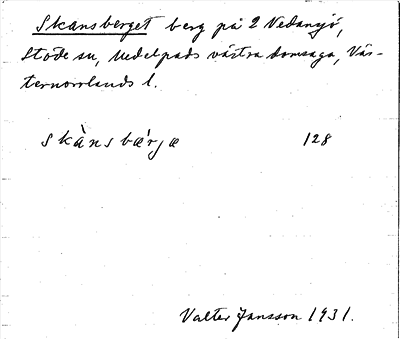 Skansberget berg på 2 Vedansjö,
Stöde sn, Medelpads västra domsaga, Väs-
ternorrlands l.
skànsbæ̀rjæ 128
Valter Jansson 1931.